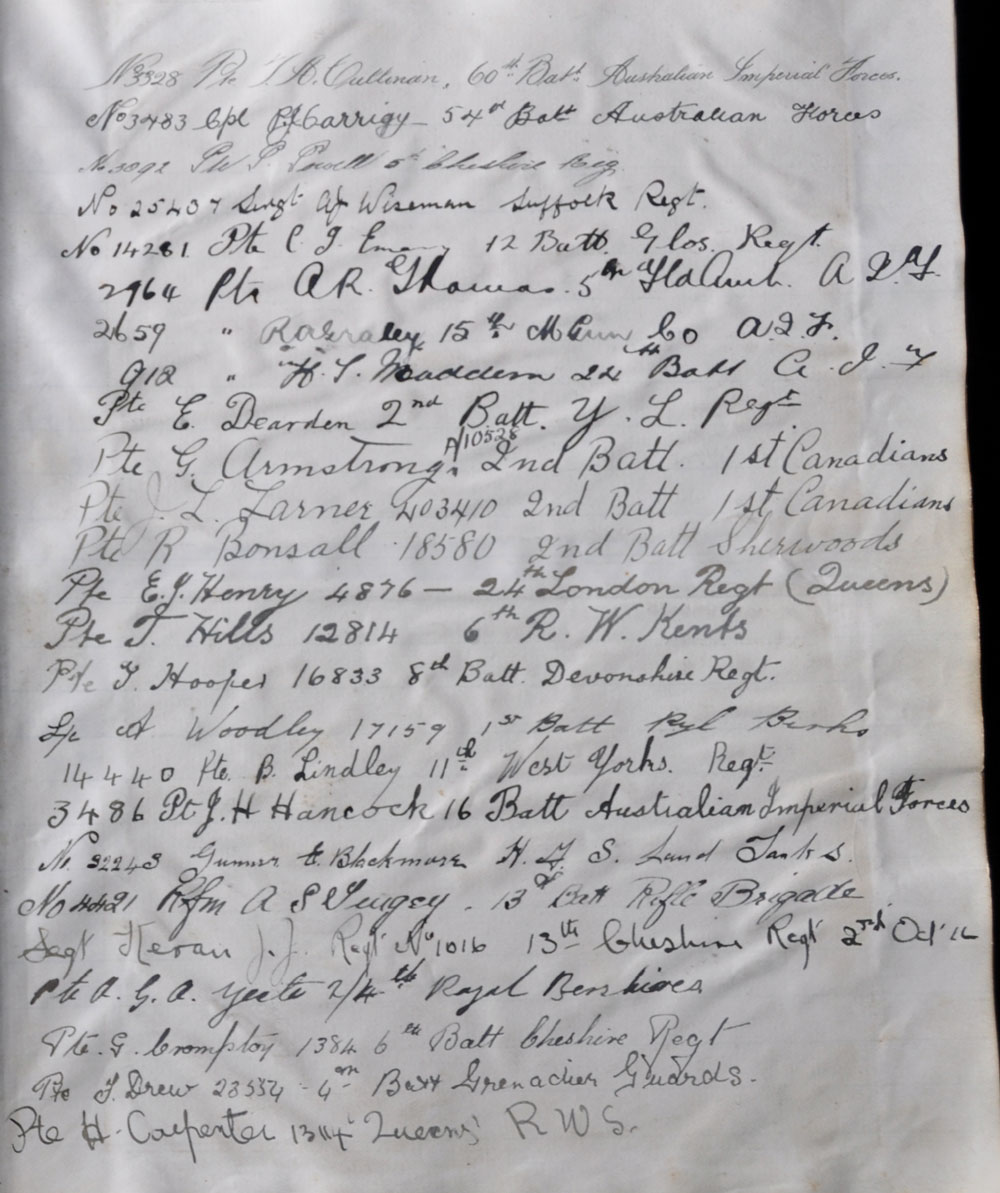 No 3328 Pte T. A. Cullinan, 60th Batt. Australian Imperial Forces.
No 3483 Cpl Garrigy - 54th Batt Australian Forces
No 3092 Pte Powell 5th Cheshire Reg.
No 25437 Sergt Wiseman Suffolk Regt.
No 14281 Pte C. J. 12 Batt. Glos. Regt.
2964 Pte A.R. Thomas. 5th Fld Amb. A.I.F.
2659 " 15th M Gun Co A.I.F.
912 " H. S. Maddern 24th Batt A. I. F
Pte E. Dearden 2nd Batt. Y. L. Regt
A/10528
Pte G. Armstrong, 2nd Batt. 1st Canadians
Pte J. L. Larner 403410 2nd Batt 1st Canadians
Pte R Bonsall 18580 2nd Batt Sherwoods
Pte E.J. Henry 4876 — 24th London Regt (Queens)
Pte T. Hills 12814 6th R. W. Kents
Pte F. Hooper 16833 8th Batt. Devonshire Regt.
L/c A Woodley 17159 1st Batt Ryl Berks
14440 Pte. B. Lindley 11th West Yorks. Regt.
3486 Pt J. H Hancock 16 Batt Australian Imperial Forces
No 32243 Gunner E. Blackmore H. S. Land Tanks.
No 4421 Rfm A S 13th Batt Rifle Brigade
Segt Keran J.J. Regt No 1016 13th Cheshire Regt 2nd Oct 16
Pte A. G. A. Yeats 2/4th Royal Berkshires
Pte. G. Crompton 1384 6th Batt Cheshire Regt
Pte F. Drew 23554 - 4th Batt Grenadier Guards.
Pte H. Carpenter Queens' R W S.